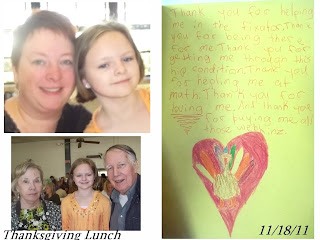 Thank you for helping
me in the fixator,Thank
you for being there
for me.Thank you for
getting me through this
hip condition.Thank
you for helping me at
math.Thank you for
loving me. And thank you
for buying me all
those webkinz.
Thanksgiving Lunch
11/18/11